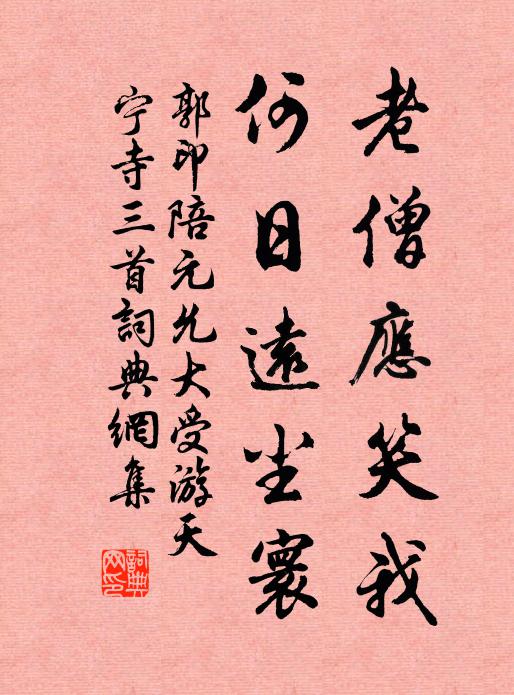 老僧應笑我
何日遠尘寰
郭印陪元允大受游天
宁寺三首詞典網集
詞典網印